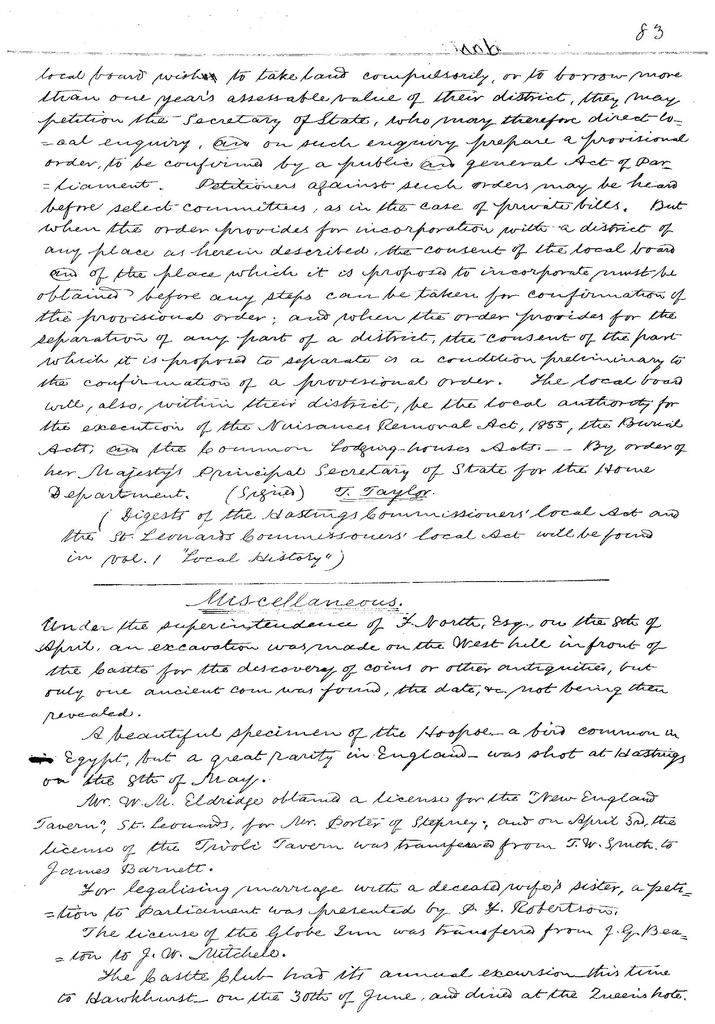 83
local board wish to take land compulsorily, or to borrow more
than one year's assessable value of their district, they may
petition the Secretary of State, who may therefore direct lo-
=cal enquiry, and on such enquiry prepare a provisional
order, to be confirmed by a public and general Act of Par-
=liament. Petitioners against such orders may be heard
before select committees, as in the case of private bills. But
when the order provides for incorporation with a district of
any place as herein described, the consent of the local board
and of the place which it is proposed to incorporate must be
obtained before any steps can be taken for confirmation of
the provisional order; and when the order provides for the
separation of any part of a district, the consent of the part
which it is proposed to separate is a condition preliminary to
the confirmation of a provisional order. The local board
will, also, within their district, be the local authority for
the execution of the Nuisances Removal Act, 1855, the Burial
Acts; and the Common Lodging-houses Acts. — By order of
her Majesty's Principal Secretary of State for the Home
Department. (Signed) T. Taylor.
(Digests of the Hastings Commissioners' local Act and
the St. Leonards Commissoners' local Act will be found
in vol. 1 "Local History")
Miscellaneous.
Under the superintendence of F. North, Esq. on the 8th of
April, an excavation was made on the West hill in front of
the Castle for the discovery of coins or other antiquities, but
only one ancient coin was found, the date, &c, not being then
revealed.
A beautiful specimen of the Hoopoe - a bird common in
Egypt, but a great rarity in England - was shot at Hastings
on the 8th of May.
Mr. W. M. Eldridge obtained a license for the "New England
Tavern", St. Leonards, for Mr. Porter of Stepney; and on April 3rd, the
license of the Tivoli Tavern was transferred from T. W. Smith to
James Barnett.
For legalising marriage with a deceased wife's sister, a peti-
=tion to Parliament was presented by P. F. Robertson.
The license of the Globe Inn was transferred from J. G. Bea-
=ton to J. W. Mitchele.
The Castle Club had its annual excursion this time
to Hawkhurst - on the 30th of June, and dined at the Queen's hote.